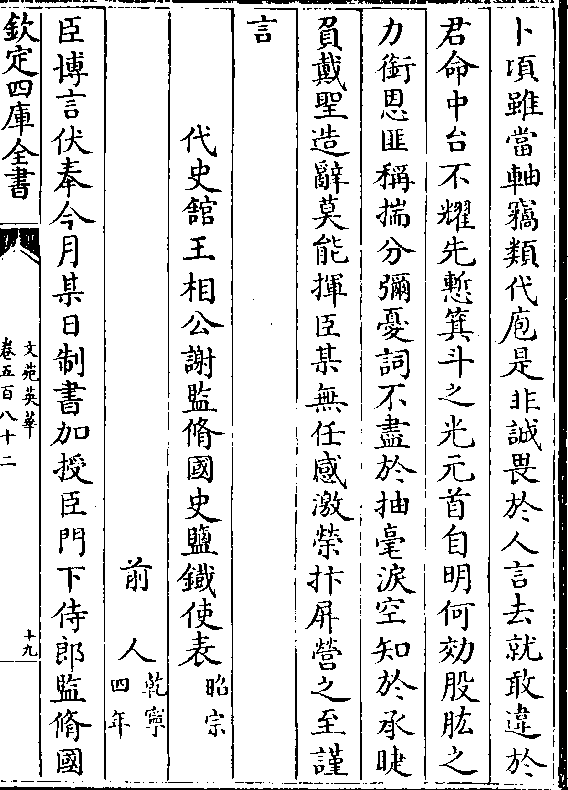 卜項雖當軸竊類代庖是非誠畏於人言去就敢違於
君命中台不耀先慙箕斗之光元首自明何効股肱之
力銜恩匪稱揣分彌憂詞不盡於抽毫淚空知於承睫
負戴聖造辭莫能揮臣某無任感激榮抃屏營之至謹
言
代史館王相公謝監脩國史鹽鐵使表昭宗
前人乾寧四年
臣博言伏奉今月某日制書加授臣門下侍郎監脩國
欽定四庫全書
文苑英華
卷五百八十二
十九